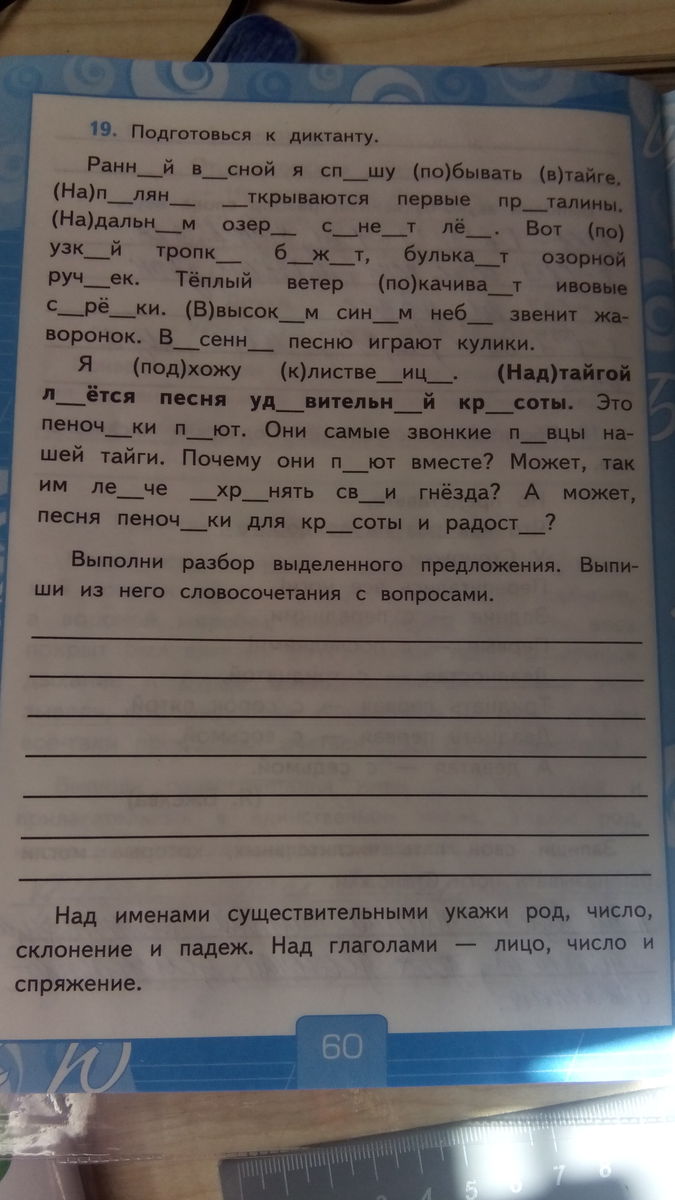 19. Подготовься к диктанту.
Ранн__й в__сной я сп__шу (по)бывать (в)тайге.
(На)п__лян__ __ткрываются первые пр__талины.
(На)дальн__м озер__ с__не__т лё__. Вот (по)
узк__й тропк__ б__ж__т, булька__т озорной
руч__ек. Тёплый ветер (по)качива__т ивовые
с__рё__ки. (В)высок__м син__м неб__ звенит жа-
воронок. В__сенн__ песню играют кулики.
Я (под)хожу (к)листве__иц__. (Над)тайгой
л__ётся песня уд__вительн__й кр__соты. Это
пеноч__ки п__ют. Они самые звонкие п__вцы на-
шей тайги. Почему они п__ют вместе? Может, так
им ле__че __хр__нять св__и гнёзда? А может,
песня пеноч__ки для кр__соты и радост__?
Выполни разбор выделенного предложения. Выпи-
ши из него словосочетания с вопросами.
Над именами существительными укажи род, число,
склонение и падеж. Над глаголами — лицо, число и
спряжение.
60
4 5 6 7 8